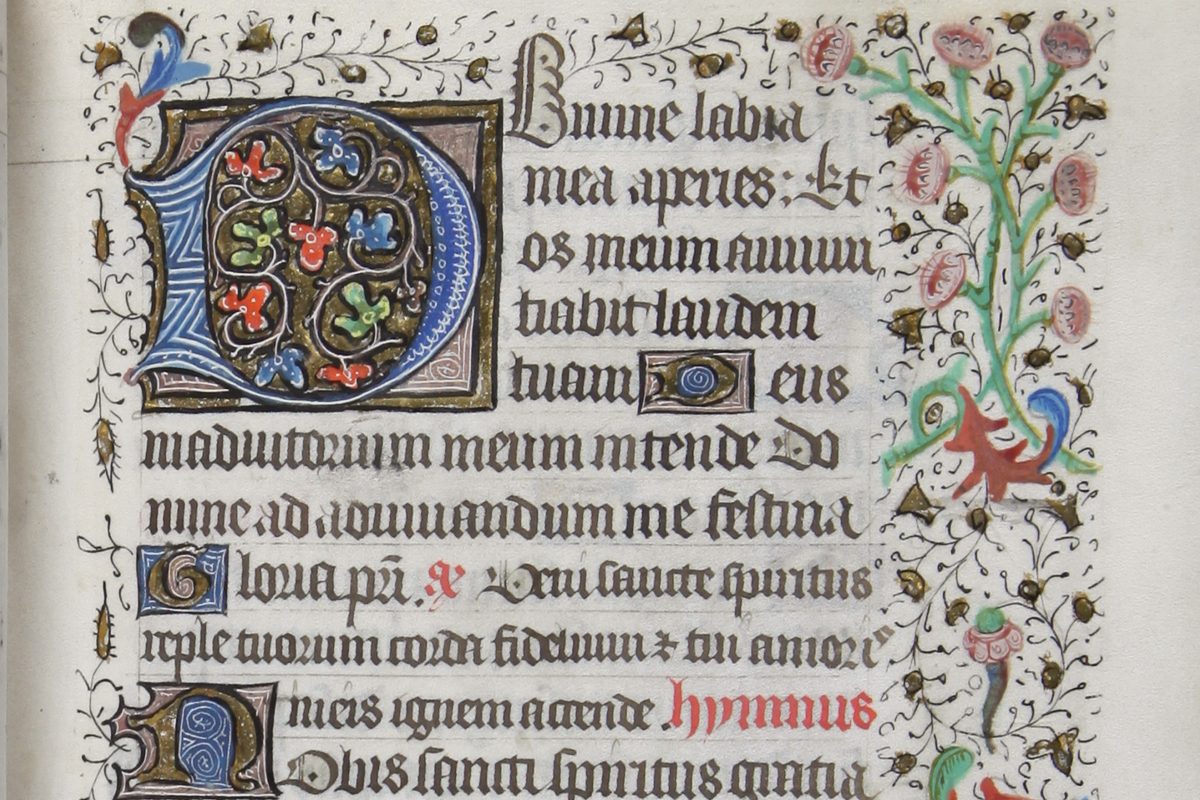 Domine labia
mea aperies: Et
os meum annun
tiabit laudem
tuam Deus
in adiutorium meum intende Do
mine ad adiuuandum me festina
Gloria pr̄i. a Veni sancte spiritus
reple tuorum corda fidelium ⁊ tui amoris
in eis ignem accende. hympnus
Nobis sancti spiritus gratia